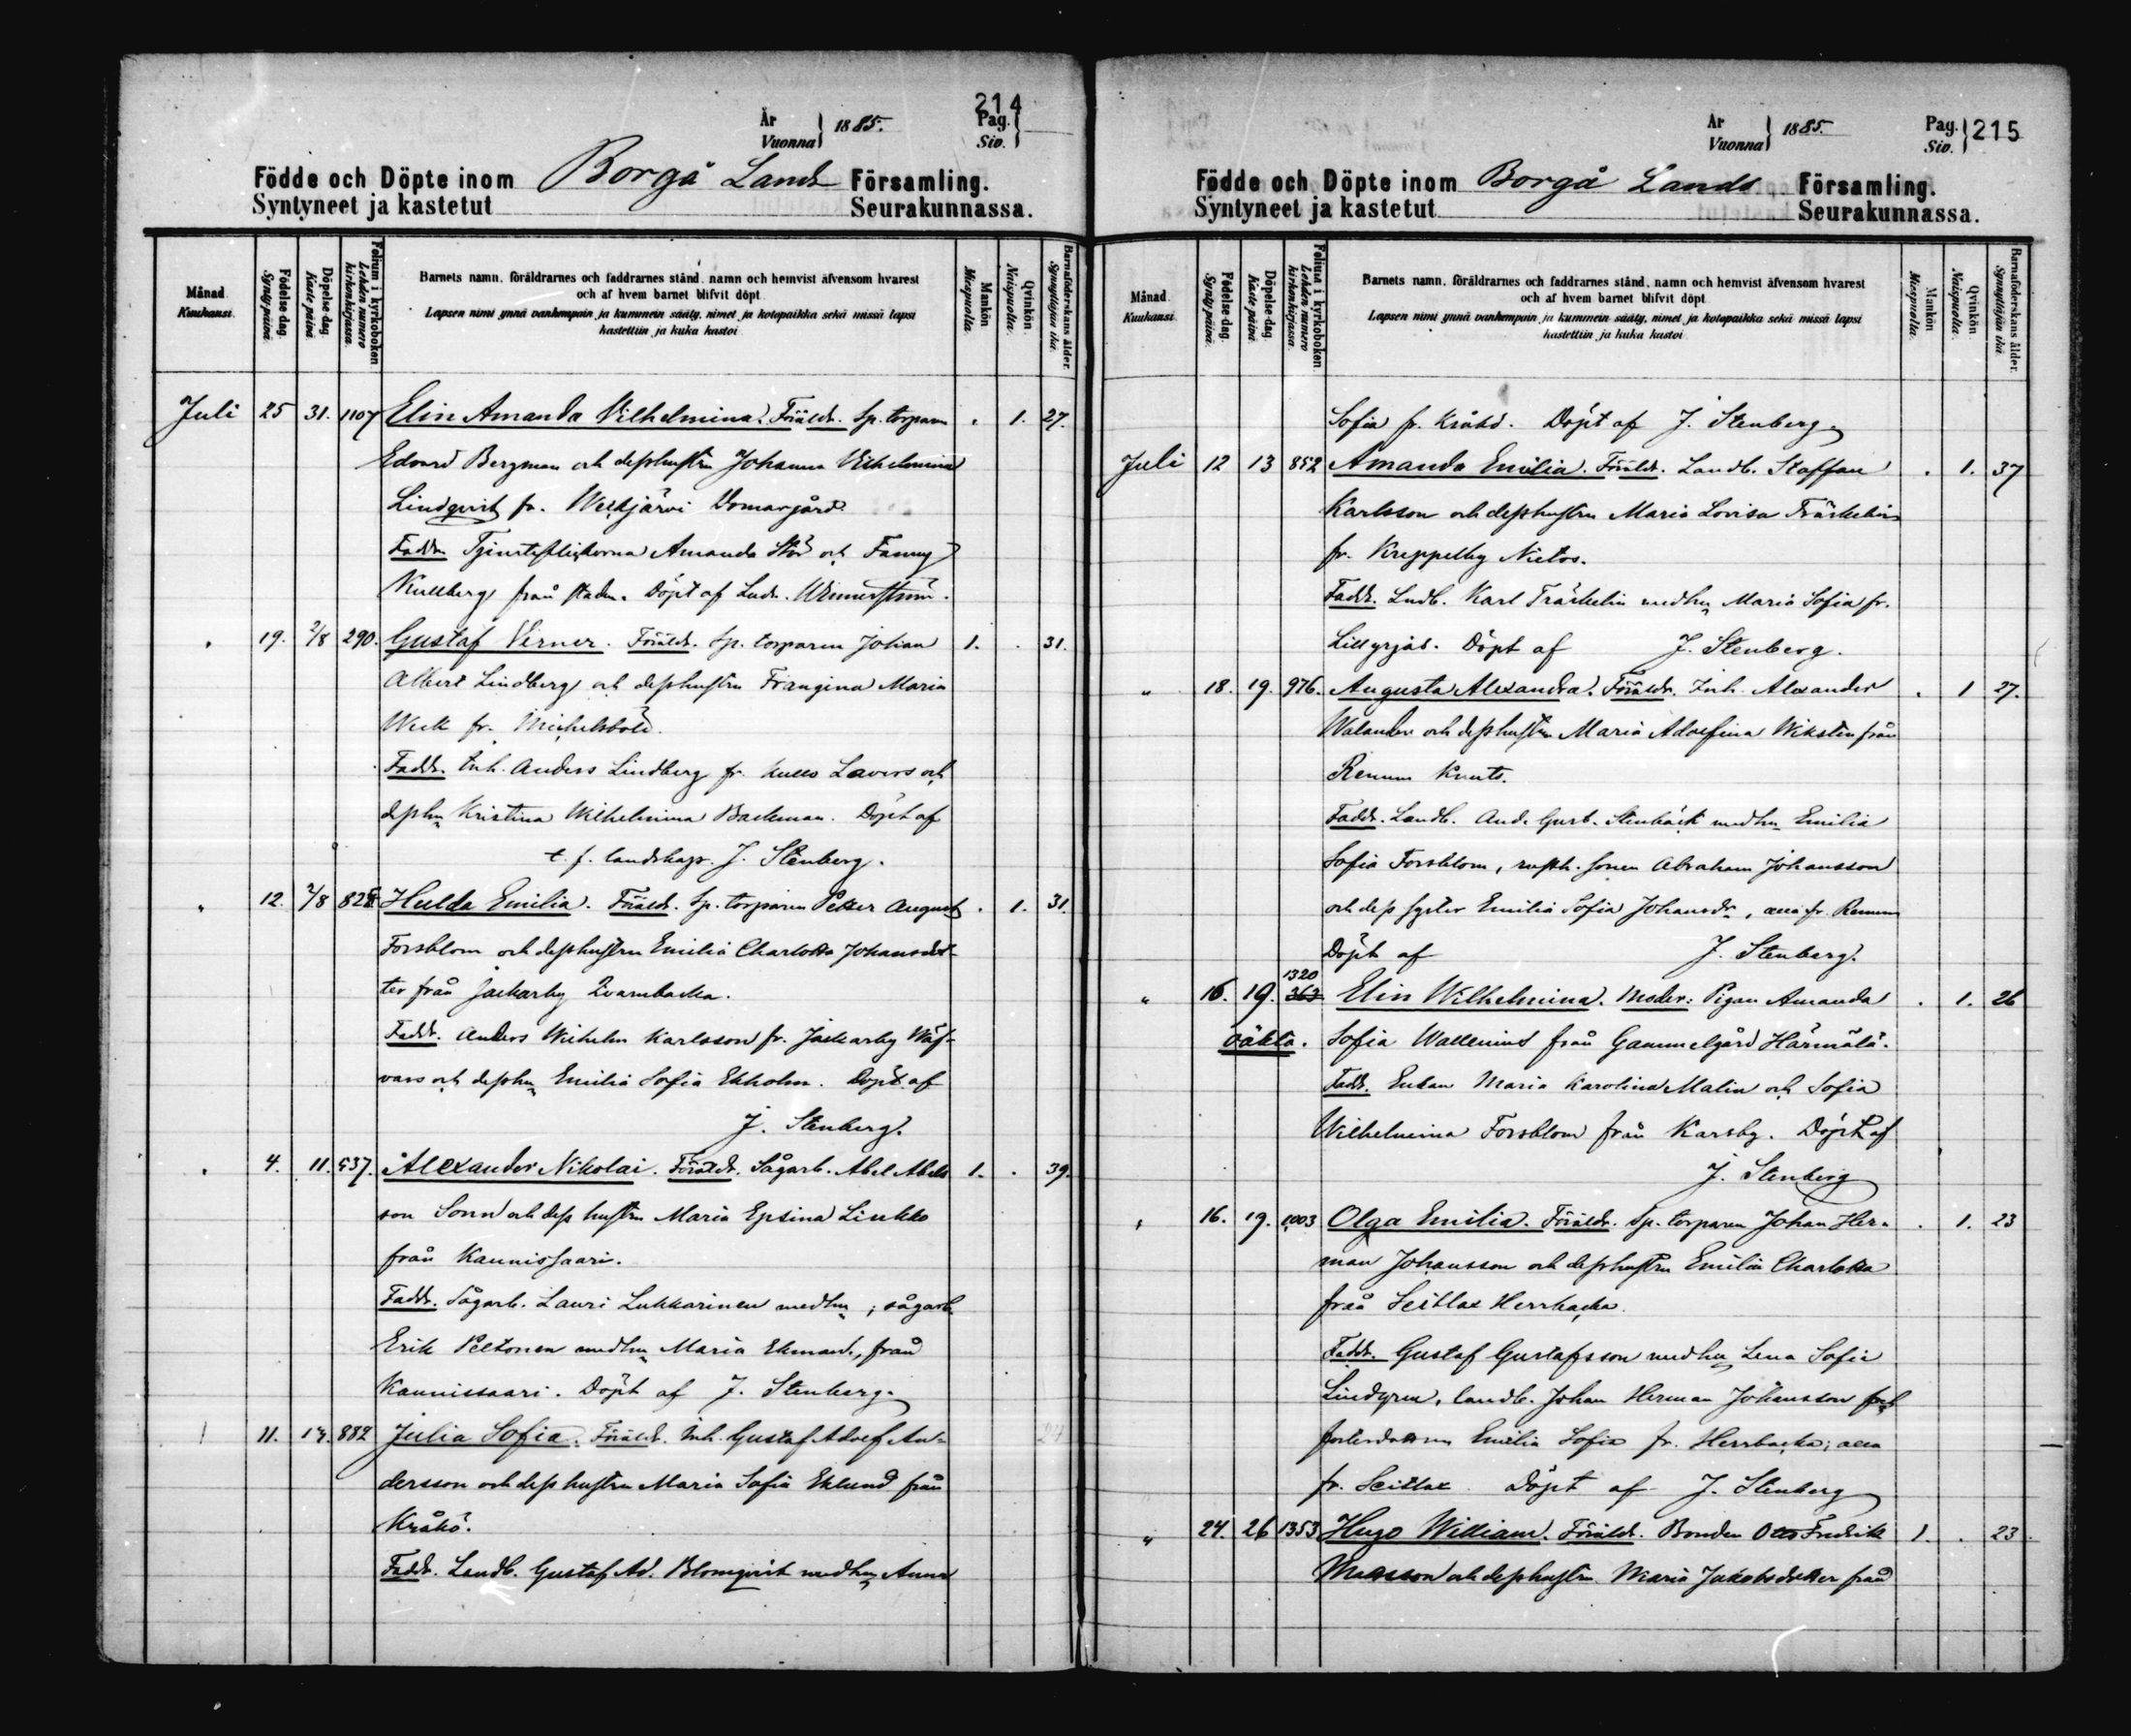 214
År
Vuonna } 1885.
Pag.
Siv. }
Födde och Döpte inom Borgå Lands Församling.
Syntyneet ja kastetut Seurakunnassa.
Månad.
Kuukausi.
Födelse dag.
Syntypäivä.
Döpelse dag.
Kaste päivä.
Folium i kyrkoboken
Lehden numero kirkonkirjassa.
Barnets namn, föräldrarnes och faddrarnes stånd, namn och hemvist äfvensom hvarest
och af hvem barnet blifvit döpt.
Lapsen nimi ynnä vanhempain ja kummein sääty, nimet ja kotopaikka sekä missä lapsi
kastettiin ja kuka kastoi
Mankön
Miespuolia.
Qvinkön.
Naispuolia.
Barnaföderskans ålder.
Synnyttäjän ikä.
Juli 25 31. 1107 Elin Amanda Vilhelmina. Föräldr. Sp. torparen . 1. 27.
Edvard Bergman och dess hustru Johanna Vilhelmina
Lindqvist fr. Domargård
Faddr. Amanda och Fanny
Kullberg från staden. Döpt af
19. 2/8 290. Gustaf Verner. Föräldr. Sp. torparen Johan 1. . 31.
Albert Lindberg och dess hustru Frangina Maria
Week fr. Mickelsböle.
Faddr. Inh. Anders Lindberg fr. Kullo Lavers och
dess hu Kristina Wilhelmina Backman. Döpt af
t. f. landskap. J. Stenberg.
12. 2/8 Hulda Emilia. Föräldr. Sp. torparen Petter August . 1. 31.
Forsblom och dess hustru Emilia Charlotta Johansdot-
ter från Jackarby Qvarnbacka.
Faddr. Anders Wilhelm Karlsson fr. Jackarby Wäf-
vars och dess hu Emilia Sofia Ekholm. Döpt af
J. Stenberg.
4. 11. 537. Alexander Nikolai. Föräldr. Sågarb. Abel Abels- 1. . 39.
son Sonn och dess hustru Maria Epsina Liukko
från Kaunissaari.
Faddr. Sågarb. Lauri Lukkarinen med hu, sågarb.
Erik Peltonen med hu Maria Ekmark, från
Kaunissaari. Döpt af J. Stenberg.
11. 14. 882 Julia Sofia. Föräldr. Inh. Gustaf Adolf An- 24
dersson och dess hustru Maria Sofia Eklund från
Kråkö.
Faddr. Landb. Gustaf Ad. Blomqvist med hu Anna
År
Vuonna } 1885.
Pag.
Siv. } 215
Födde och Döpte inom Borgå Lands Församling.
Syntyneet ja kastetut Seurakunnassa.
Månad.
Kuukausi.
Födelse dag.
Syntypäivä.
Döpelse dag.
Kaste päivä.
Folium i kyrkoboken
Lehden numero kirkonkirjassa.
Barnets namn, föräldrarnes och faddrarnes stånd, namn och hemvist äfvensom hvarest
och af hvem barnet blifvit döpt.
Lapsen nimi ynnä vanhempain ja kummein sääty, nimet ja kotopaikka sekä missä lapsi
kastettiin ja kuka kastoi
Mankön
Miespuolia.
Qvinkön.
Naispuolia.
Barnaföderskans ålder.
Synnyttäjän ikä.
Sofia fr. Kråkö. Döpt af J. Stenberg.
Juli 12 13 852 Amanda Emilia. Föräldr. Landb. Staffan . 1. 37
Karlsson och dess hustru Maria Lovisa Träskelin
fr. Kreppelby Nietos.
Faddr. Landb. Karl Träskelin med hu Maria Sofia fr.
Döpt af J. Stenberg.
" 18. 19. 976. Augusta Alexandra. Föräldr. Inh. Alexander . 1 27.
Walander och dess hustru Maria Adolfina Wiksten från
Renum Knuts.
Faddr. Landb. And. Gust. Stenbäck med hu Emilia
Sofia Forsblom, rusth. sonen Abraham Johansson
och dess syster Emilia Sofia Johansdr, alla fr. Renum
Döpt af J. Stenberg.
1320
" 16. 19. 363 Elin Wilhelmina. Moder: Pigan Amanda . 1. 26
oäkta. Sofia Wallenius från Gammelgård Härmälä.
Faddr. Enkan Maria Karolina Malin och Sofia
Wilhelmina Forsblom från Karsby. Döpt af
J. Stenberg
" 16. 19. 1003 Olga Emilia. Föräldr. Sp. torparen Johan Her- . 1. 23
man Johansson och dess hustru Emilia Charlotta
från Seitlax Herrbacka.
Faddr. Gustaf Gustafsson med hu Lena Sofia
Lindgren, landb. Johan Herman Johansson och
fosterdottren Emilia Sofia fr. Herrbacka; alla
fr. Seitlax. Döpt af J. Stenberg
" 24. 26 1353 Hugo William. Föräldr. Bonden Otto Fredrik 1. . 23
Masson och dess hustru Maria Jakobsdotter från